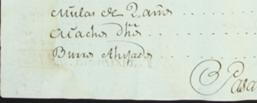 Mulas de 2 años . . . .
Machos dhõs . . . .
Burro Ahijado . . . .
Pasa